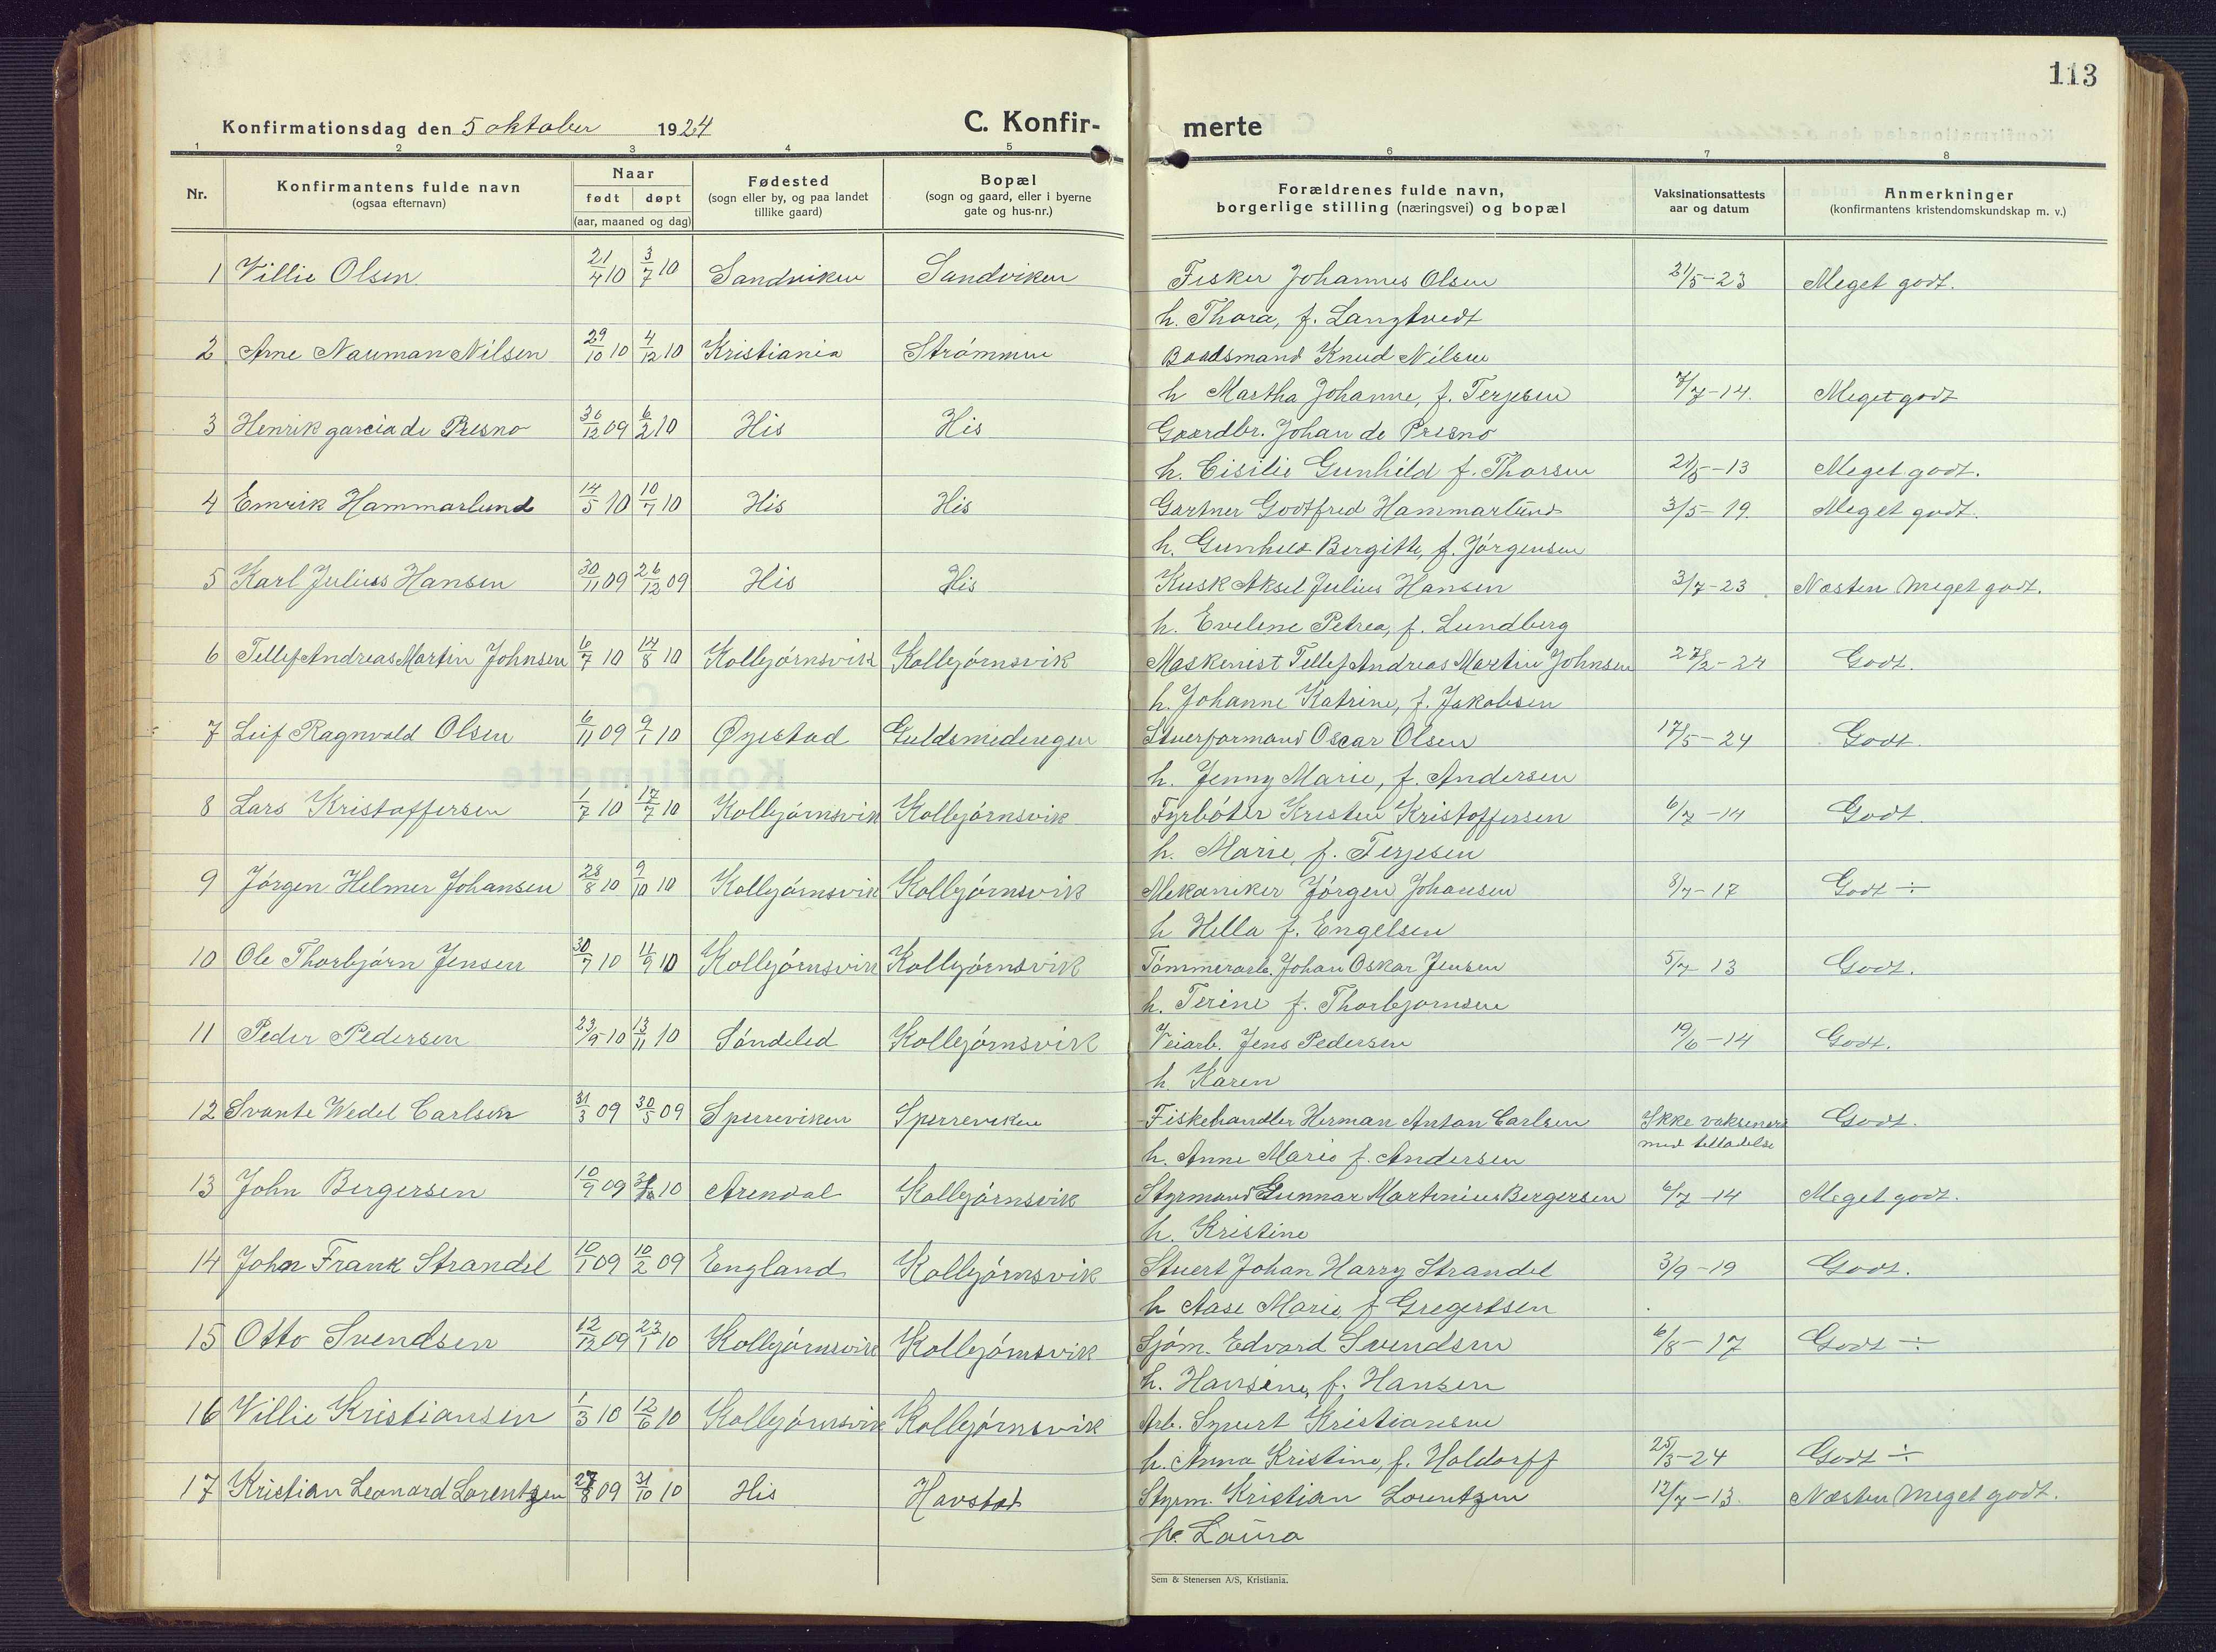 113
Konfirmationsdag den 5 oktober 1924 C. Konfir-merte
1 2 3 4 5 6 7 8
Nr. Konfirmantens fulde navn (ogsaa efternavn) Naar født døpt (aar, maaned og dag) Fødested (sogn eller by, og paa landet tillike gaard) Bopæl (sogn og gaard, eller i byerne gate og hus-nr.) Forældrenes fulde navn, borgerlige stilling (næringsvei) og bopæl Vaksinationsattests aar og datum Anmerkninger (konfirmantens kristendomskundskap m. v.)
1 Villie Olsen 21/4 10 3/7 10 Sandviken Sandviken Fisker Johannes Olsen 21/5-23 Meget godt.
h. Thora, f. Langtvedt
2 Arne Nauman Nilsen 29/10 10 4/12 10 Kristiania Strömmen Baadsmand Knud Nilsen
h Martha Johanne, f. Terjesen 7/7-14. Meget godt
3 Henrik garcia de Presno 30/12 09 6/2 10 His His Gaardbr. Johan de Presno
h. Cisilie Gunhild f. Thorsen 21/5-13 Meget godt.
4 Emrik Hammarlund 14/5 10 10/7 10 His His Gartner Godtfred Hammarlund 3/5-19. Meget godt.
h. Gunhild Bergitte, f. Jörgensen
5 Karl Julius Hansen 30/11 09 26/12 09 His His Kusk Aksel Julius Hansen 3/7-23 Næsten Meget godt.
h. Evelene Petrea, f. Lundberg
6 Tellef Andreas Martin Johnsen 6/7 10 14/8 10 Kolbjörnsvik Kolbjörnsvik Maskinist Tellef Andreas Martin Johnsen 27/2-24 Godt.
h. Johanne Katrine, f. Jakobsen
7 Leif Ragnvald Olsen 6/11 09 9/1 10 Øyestad Guldsmedengen Stuerformand Oscar Olsen 17/5-24 Godt.
h. Jenny Marie, f. Andersen
8 Lars Kristoffersen 1/7 10 17/7 10 Kolbjörnsvik Kolbjörnsvik Fyrböter Kristen Kristoffersen 6/7-14 Godt.
h. Marie, f. Terjesen
9 Jörgen Helmer Johansen 28/8 10 9/10 10 Kolbjörnsvik Kolbjörnsvik Mekaniker Jörgen Johansen 8/7-17 Godt ÷
h Hella f. Engelsen
10 Ole Thorbjörn Jensen 30/7 10 11/9 10 Kolbjörnsvik Kolbjörnsvik Tömmerarb. Johan Oskar Jensen 5/7-13 Godt.
h. Terine f. Thorbjornsen
11 Peder Pedersen 23/9 10 13/11 10 Söndeled Kolbjörnsvik Veiarb. Jens Pedersen 19/6-14 Godt.
h. Karen
12 Svante Wedel Carlsen 31/3 09 30/5 09 Sperreviken Sperreviken Fiskehandler Herman Anton Carlsen Ikke vaksinert Godt.
med tilladelse
h. Anne Marie f. Andersen
13 John Bergersen 10/9 09 10 Arendal Kolbjörnsvik Styrmand Gunnar Martinius Bergersen 6/7-14 Meget godt.
h. Kristine
14 John Frank Strandel 10/1 09 10/2 09 England Kolbjörnsvik Stuert Johan Harry Strandel 3/9-19 Godt.
h Aase Marie f Gregertsen
15 Otto Svendsen 12/12 09 23/1 10 Kolbjörnsvik Kolbjörnsvik Sjöm. Edvard Svendsen 6/8-17 Godt ÷
h. Hansine, f. Hansen
16 Villie Kristiansen 1/3 10 12/6 10 Kolbjörnsvik Kolbjörnsvik Arb. Syvert Kristiansen
h. Anna Kristine, f. Holdorff 25/3-24 Godt ÷
17 Kristian Leonard Lorentzen 27/8 09 31/10 10 His Havstad Styrm. Kristian Lorentzen 12/7-13. Næsten Meget godt.
h. Laura
Sem & Stenersen A/S, Kristiania.